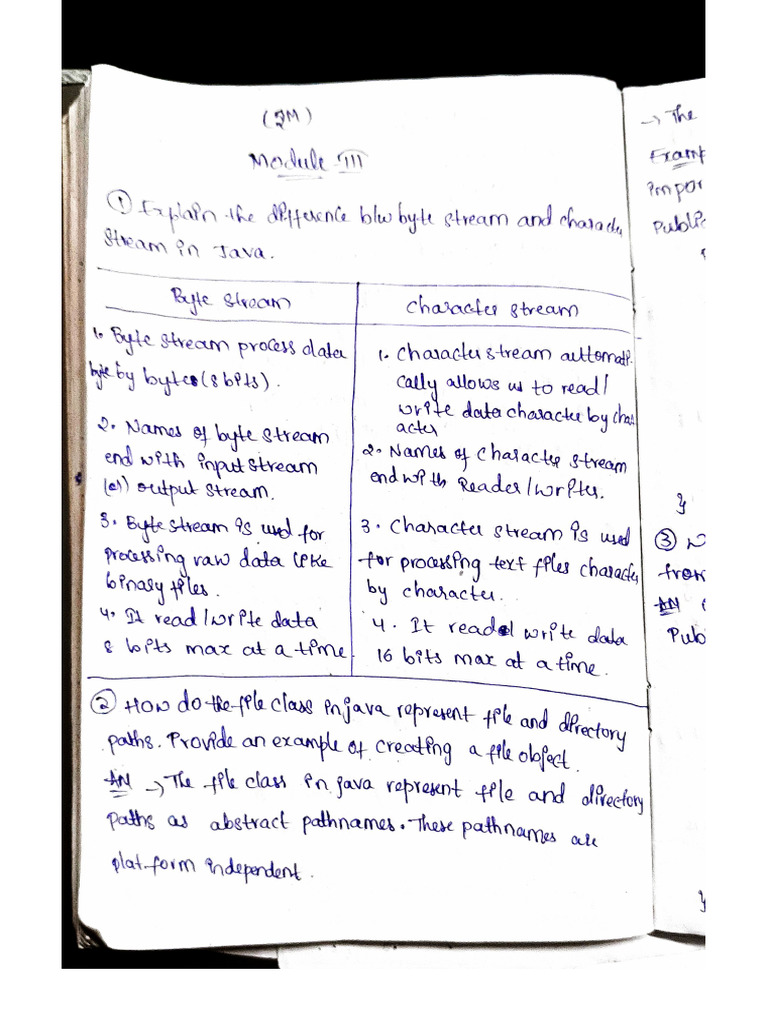 (2M)
Module III
① Explain the difference b/w byte stream and character
stream in Java.
Byte Stream
1. Byte stream process data
byte by bytes (8 bits).
2. Names of byte stream
end with input stream
(or) output stream.
3. Byte stream is used for
processing raw data like
binary files.
4. It read/write data
8 bits max at a time.
Character stream
1. Character stream automati
cally allows us to read/
write data character by char
acter
2. Names of character stream
end with Reader/writer.
3. Character stream is used
for processing text files character
by character.
4. It read write data
16 bits max at a time.
② How do the file class in java represent file and directory
paths. Provide an example of creating a file object.
AN → The file class in java represent file and directory
paths as abstract pathnames. These pathnames are
platform independent.
→ The
Examp
impor
Public
}
③
from
AN
Pub
}